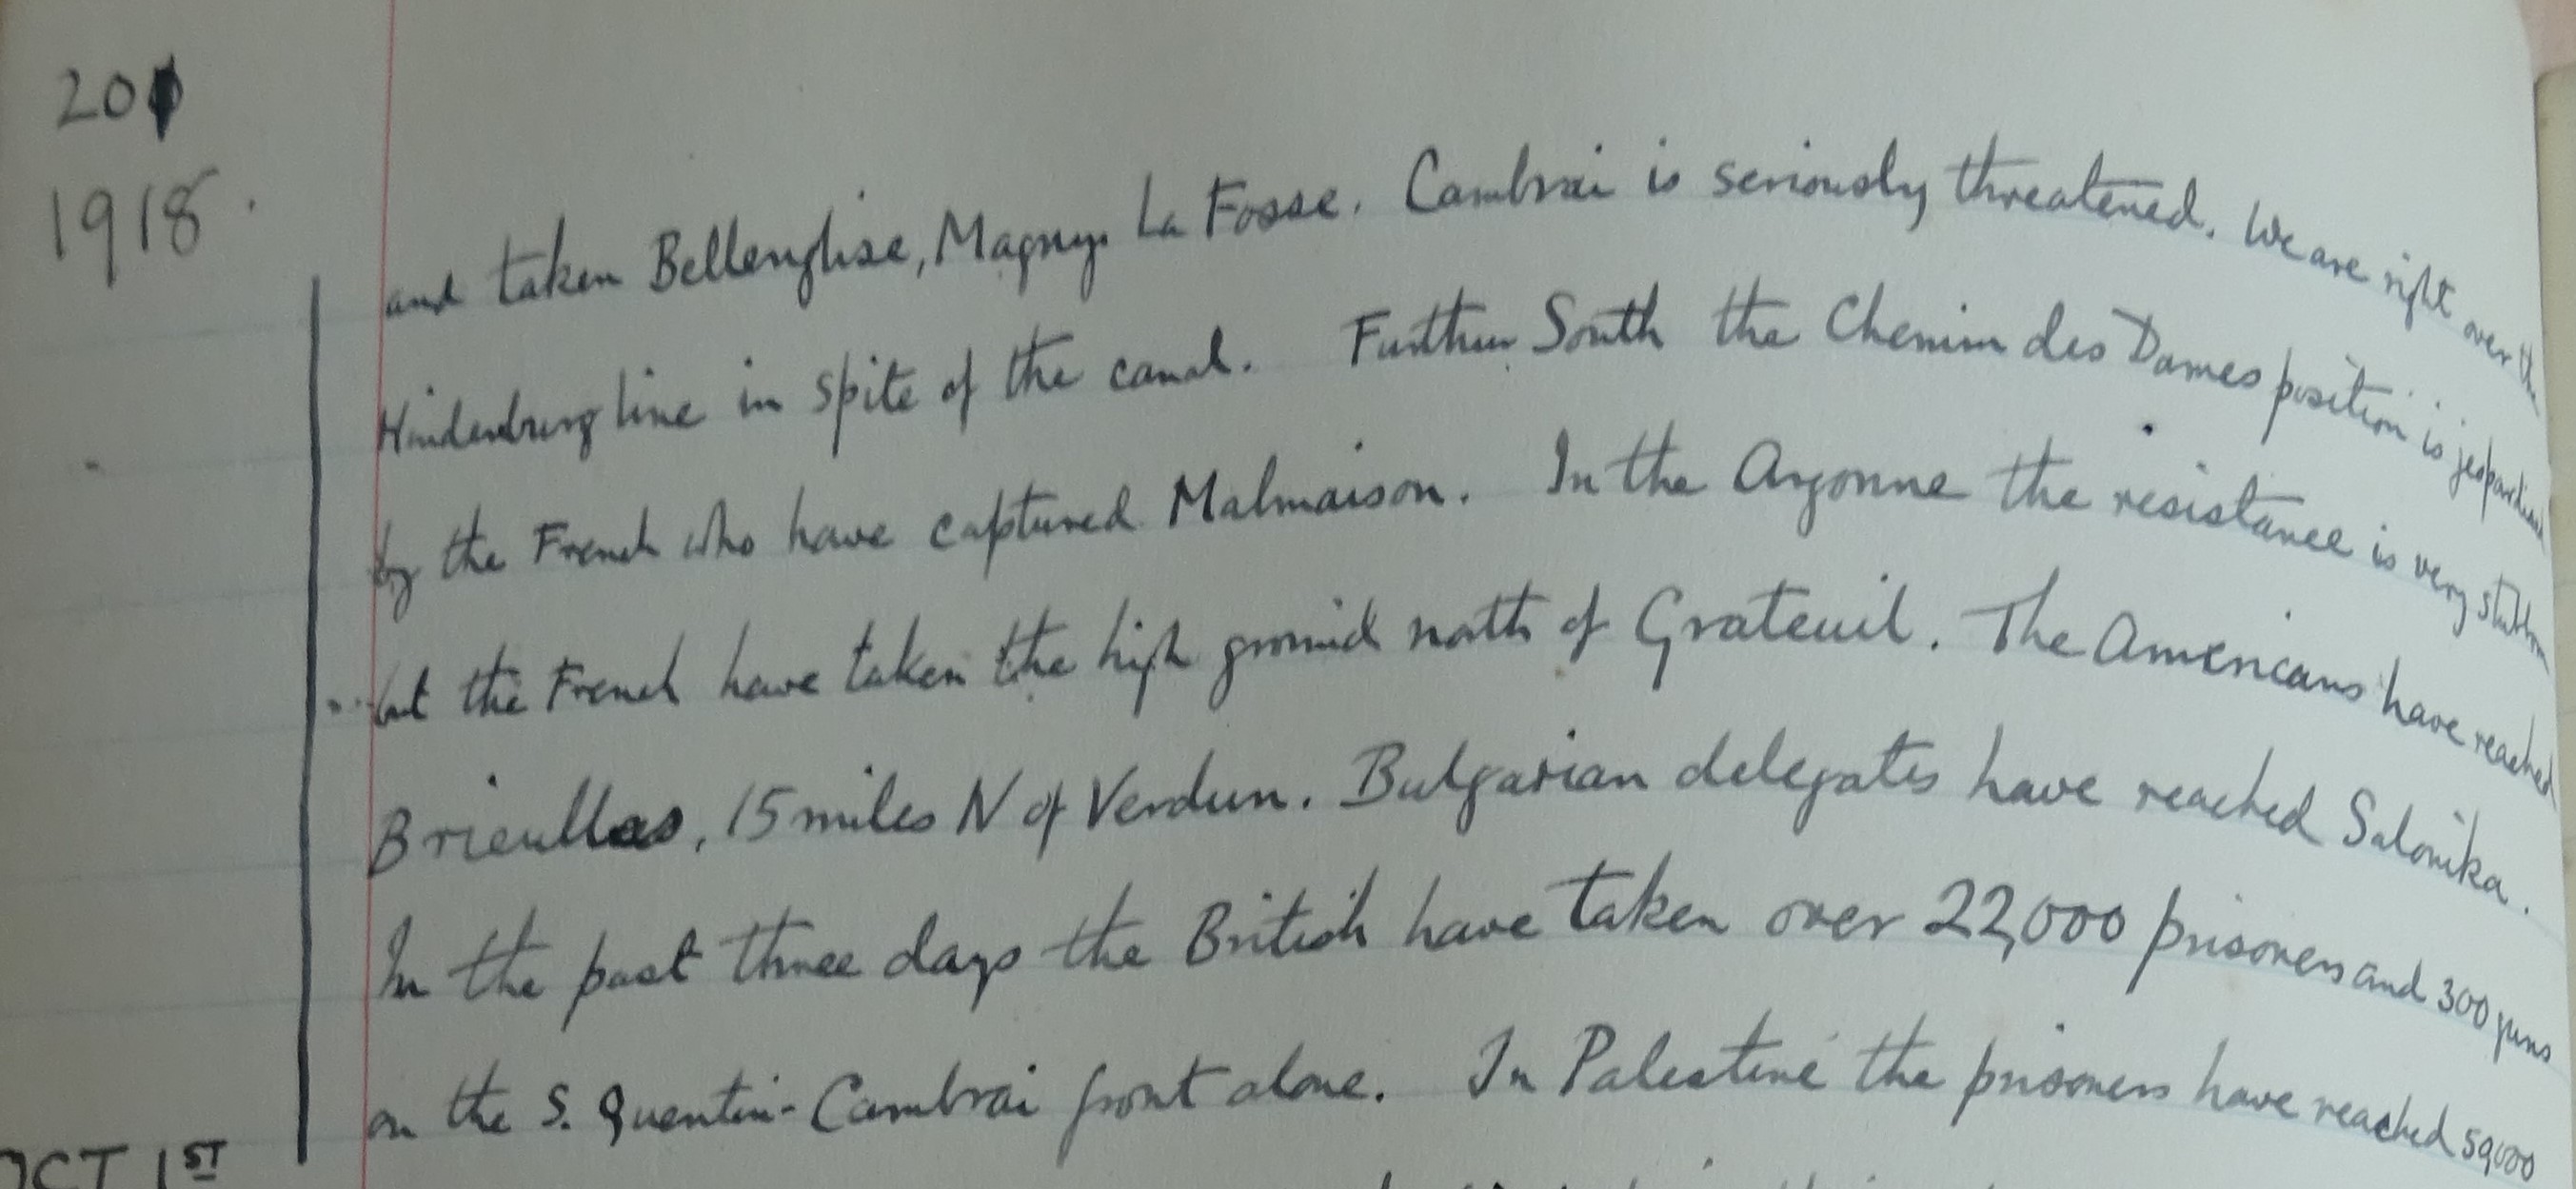 201
1918.
and taken Bellenglise, Magny La Fosse. Cambrai is seriously threatened. We are right over the
Hindenburg line in spite of the canal. Further South the Chemin des Dames position is jeopardised
by the French who have captured Malmaison. In the Argonne the resistance is very stubborn
but the French have taken the high ground north of Grateuil. The Americans have reached
Brieulles, 15 miles N of Verdun. Bulgarian delegates have reached Salonika.
In the past three days the British have taken over 22,000 prisoners and 300 guns
on the S. Quentin-Cambrai front alone. In Palestine the prisoners have reached 59000
OCT 1ST